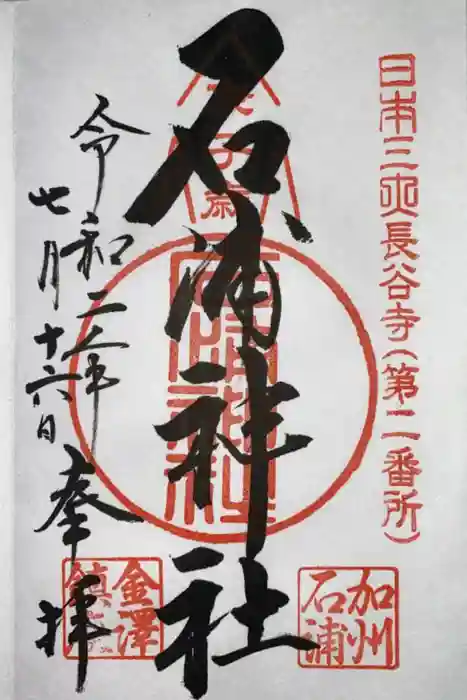 日本三大長谷寺(第二番所)
加州
石浦
石浦神社
令和二年
七月十六日
奉拝
金澤
鎮